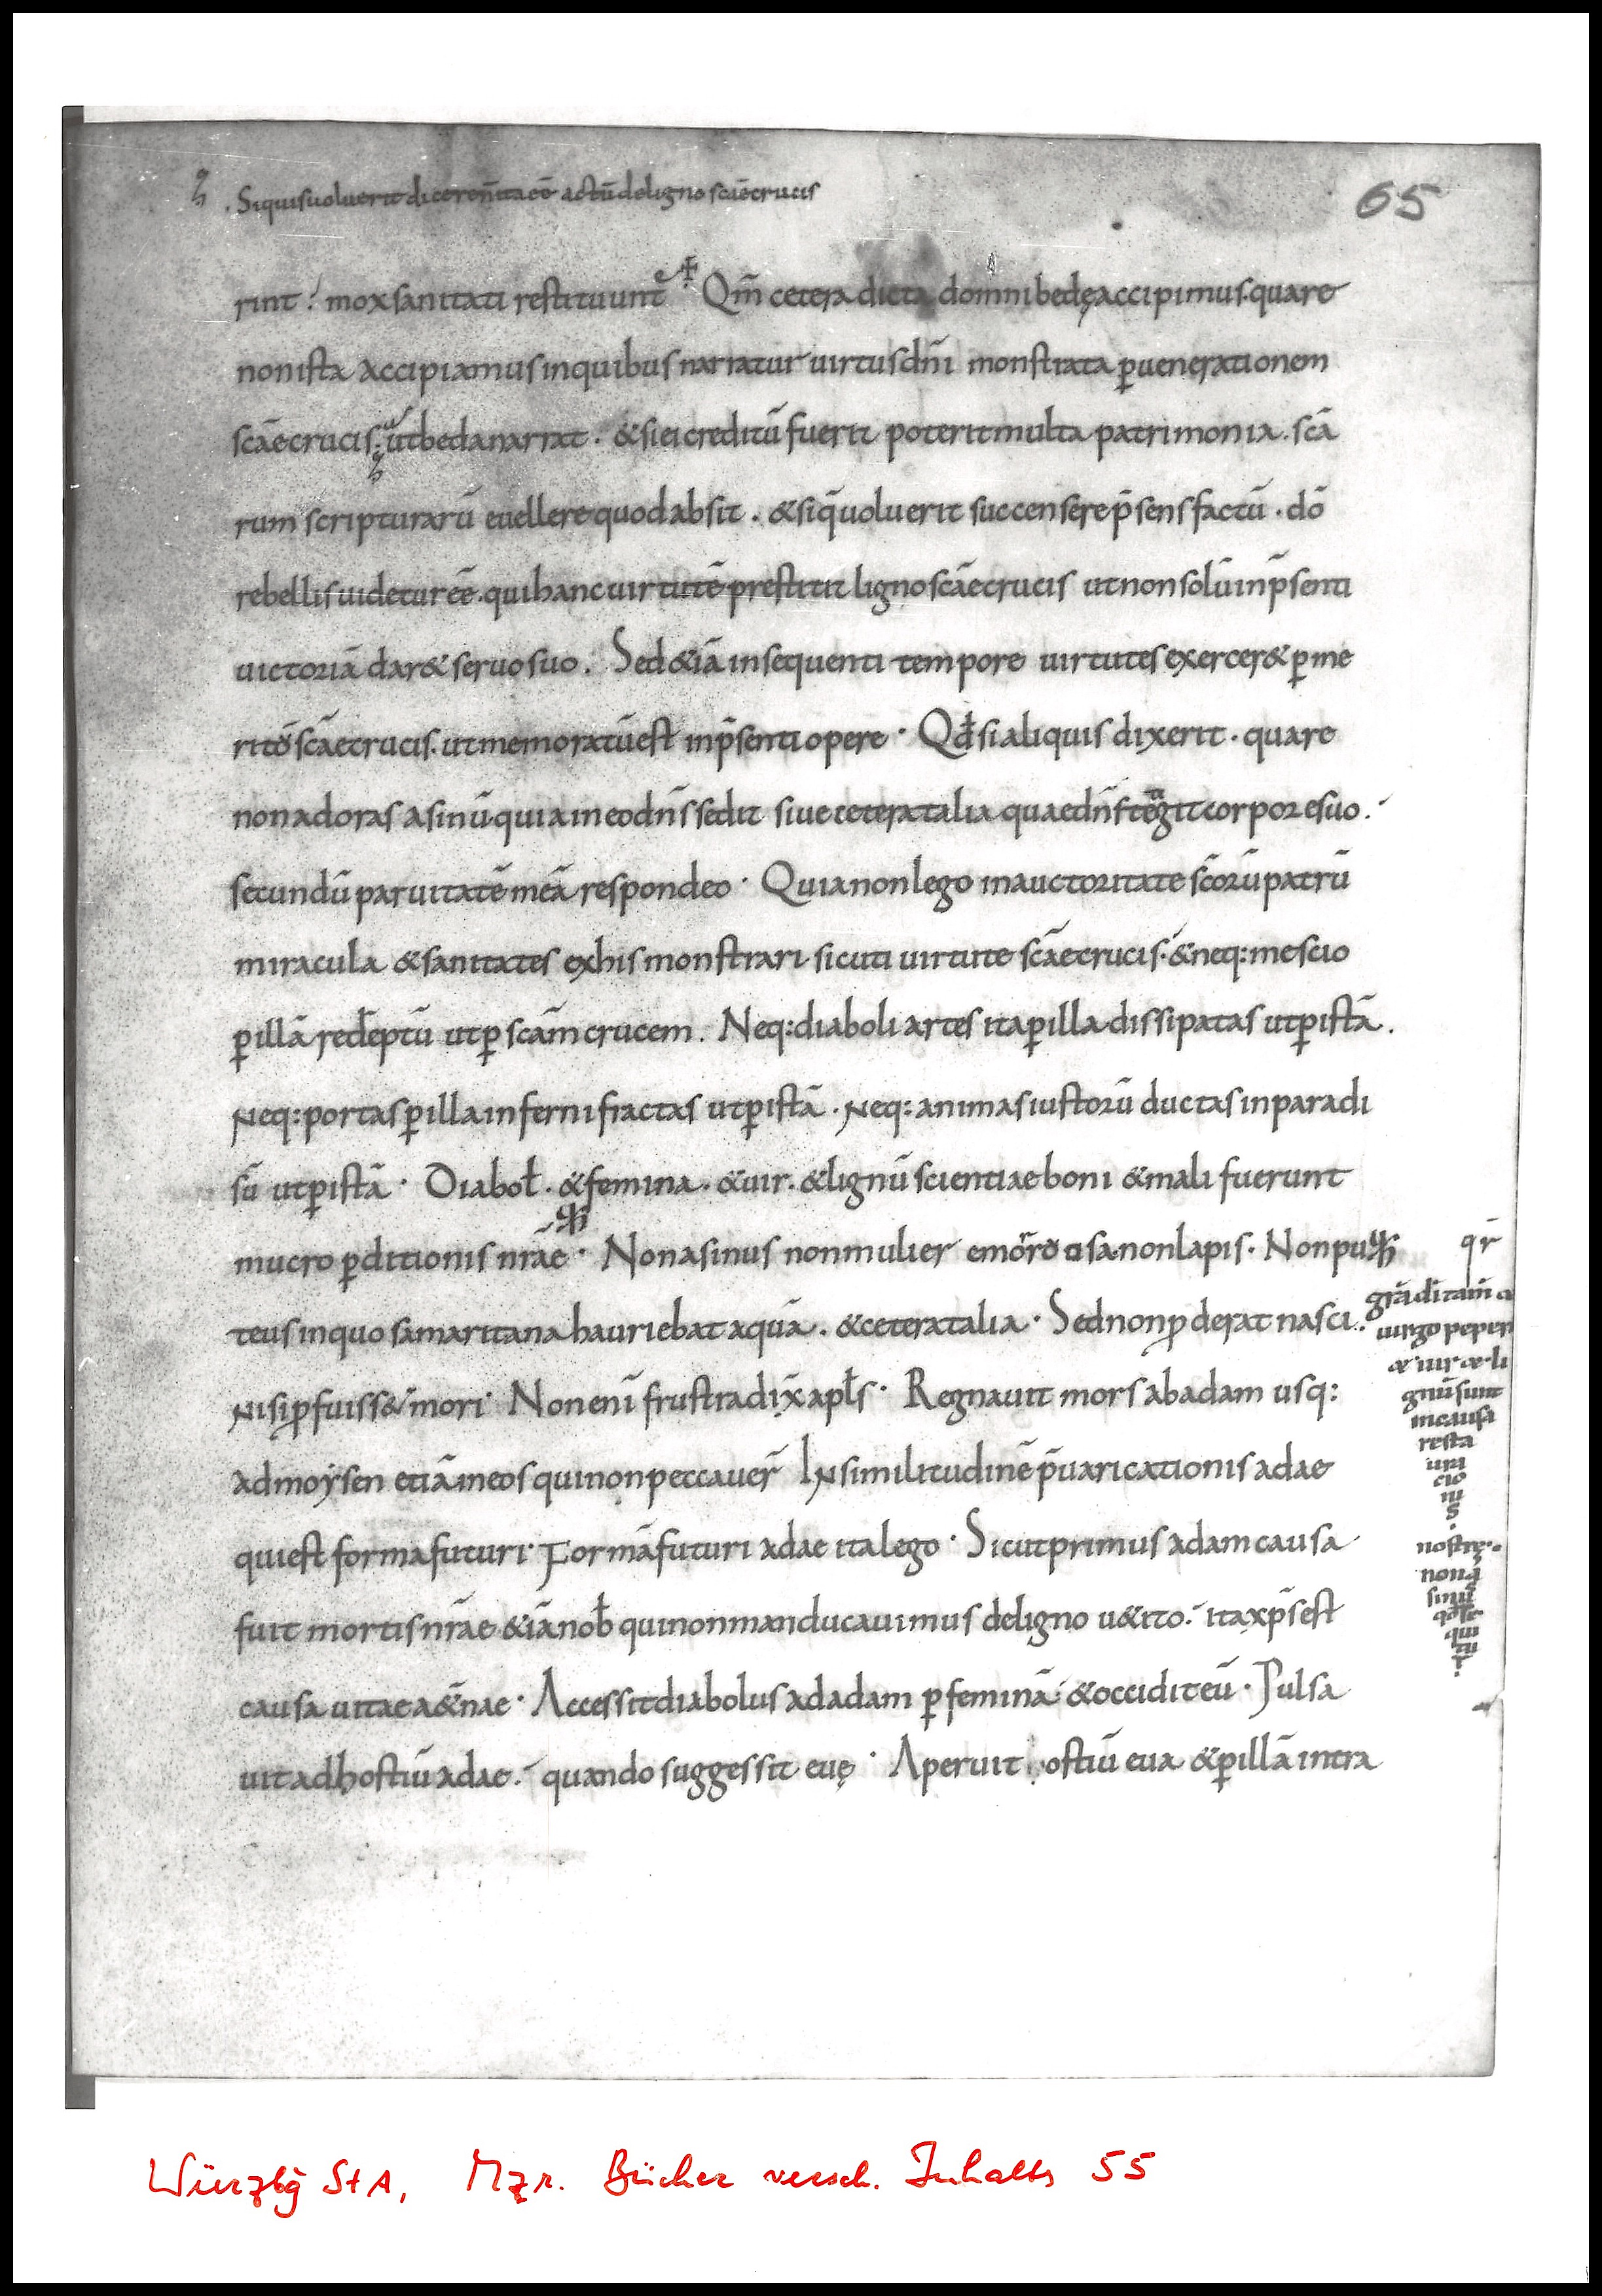 65
. Siquisuoluerit dicere n̄ ita eē actū deligno scāecrucis
rint · mox sanitati restituunt · Qm̄ cetera dicta domni bedę accipimus · quare
non ista accipiamus inquibus narratur uirtus dn̄i monstrata ꝑuenerationem
scāe crucis · ut beda narrat · & si ei creditū fuerit poterit multa patrimonia · scā
rum scripturarū euellere quod absit · & siq̄ uoluerit succensere p̄sens factū · dō
rebellis uidetur eē · qui hanc uirtutē prestitit ligno scāe crucis ut non solū in p̄senti
uictoriā dar& seruo suo . Sed &iā insequenti tempore uirtutes exercer& ꝑ me
ritū scāe crucis · ut memoratū est in p̄senti opere · Qd̄ si aliquis dixerit · quare
non adoras asinū quia in eo dn̄s sedit siue cetera talia quae dn̄s tegit corpore suo ·
secundū paruitatē meā respondeo · Quia non lego in auctoritate sc̄orū patrū
miracula & sanitates ex his monstrari sicuti uirtute scāe crucis · & neq: me scio
ꝑ illā redeptū ut ꝑ scām crucem . Neq: diaboli artes ita ꝑ illa dissipatas ut ꝑ istā .
Neq: portas ꝑ illa inferni fractas ut ꝑ istā · Neq: animas iustorū ductas in paradi
sū ut ꝑ istā · Diabol̄ · & femina · & uir · & lignū scientiae boni & mali fuerunt
mucro ꝑditionis nr̄ae · Non asinus non mulier emorroosa · non lapis · Non pu
teus in quo samaritana hauriebat aquā · & cetera talia · Sed non ꝓderat nasci ·
Nisi ꝓfuiss& mori · Non enī frustra dix̄ apl̄s · Regnauit mors ab adam usq:
ad moẏsen etiā in eos qui non peccauer̄ In similitudinē p̄uaricationis adae
qui est forma futuri · Formā futuri adae ita lego · Sicut primus adam causa
fuit mortis nr̄ae &iā nob̄ qui non manducauimus de ligno u&ito · ita xp̄s est
causa uitae a&n̄ae · Accessit diabolus ad adam ꝑ feminā & occidit eū · Pulsa
uit ad hostiū adae · quando suggessit euę · Aperuit ostiū eua & ꝑ illā intra
qr̄
uirgo peper
& uir & li
gnū sunt
in causa
resta
ura
cio
ni
s
nostre ·
non a
sinū
qui
tu
r
Würzbg StA, Mzr. Bücher versch. Inhalts 55